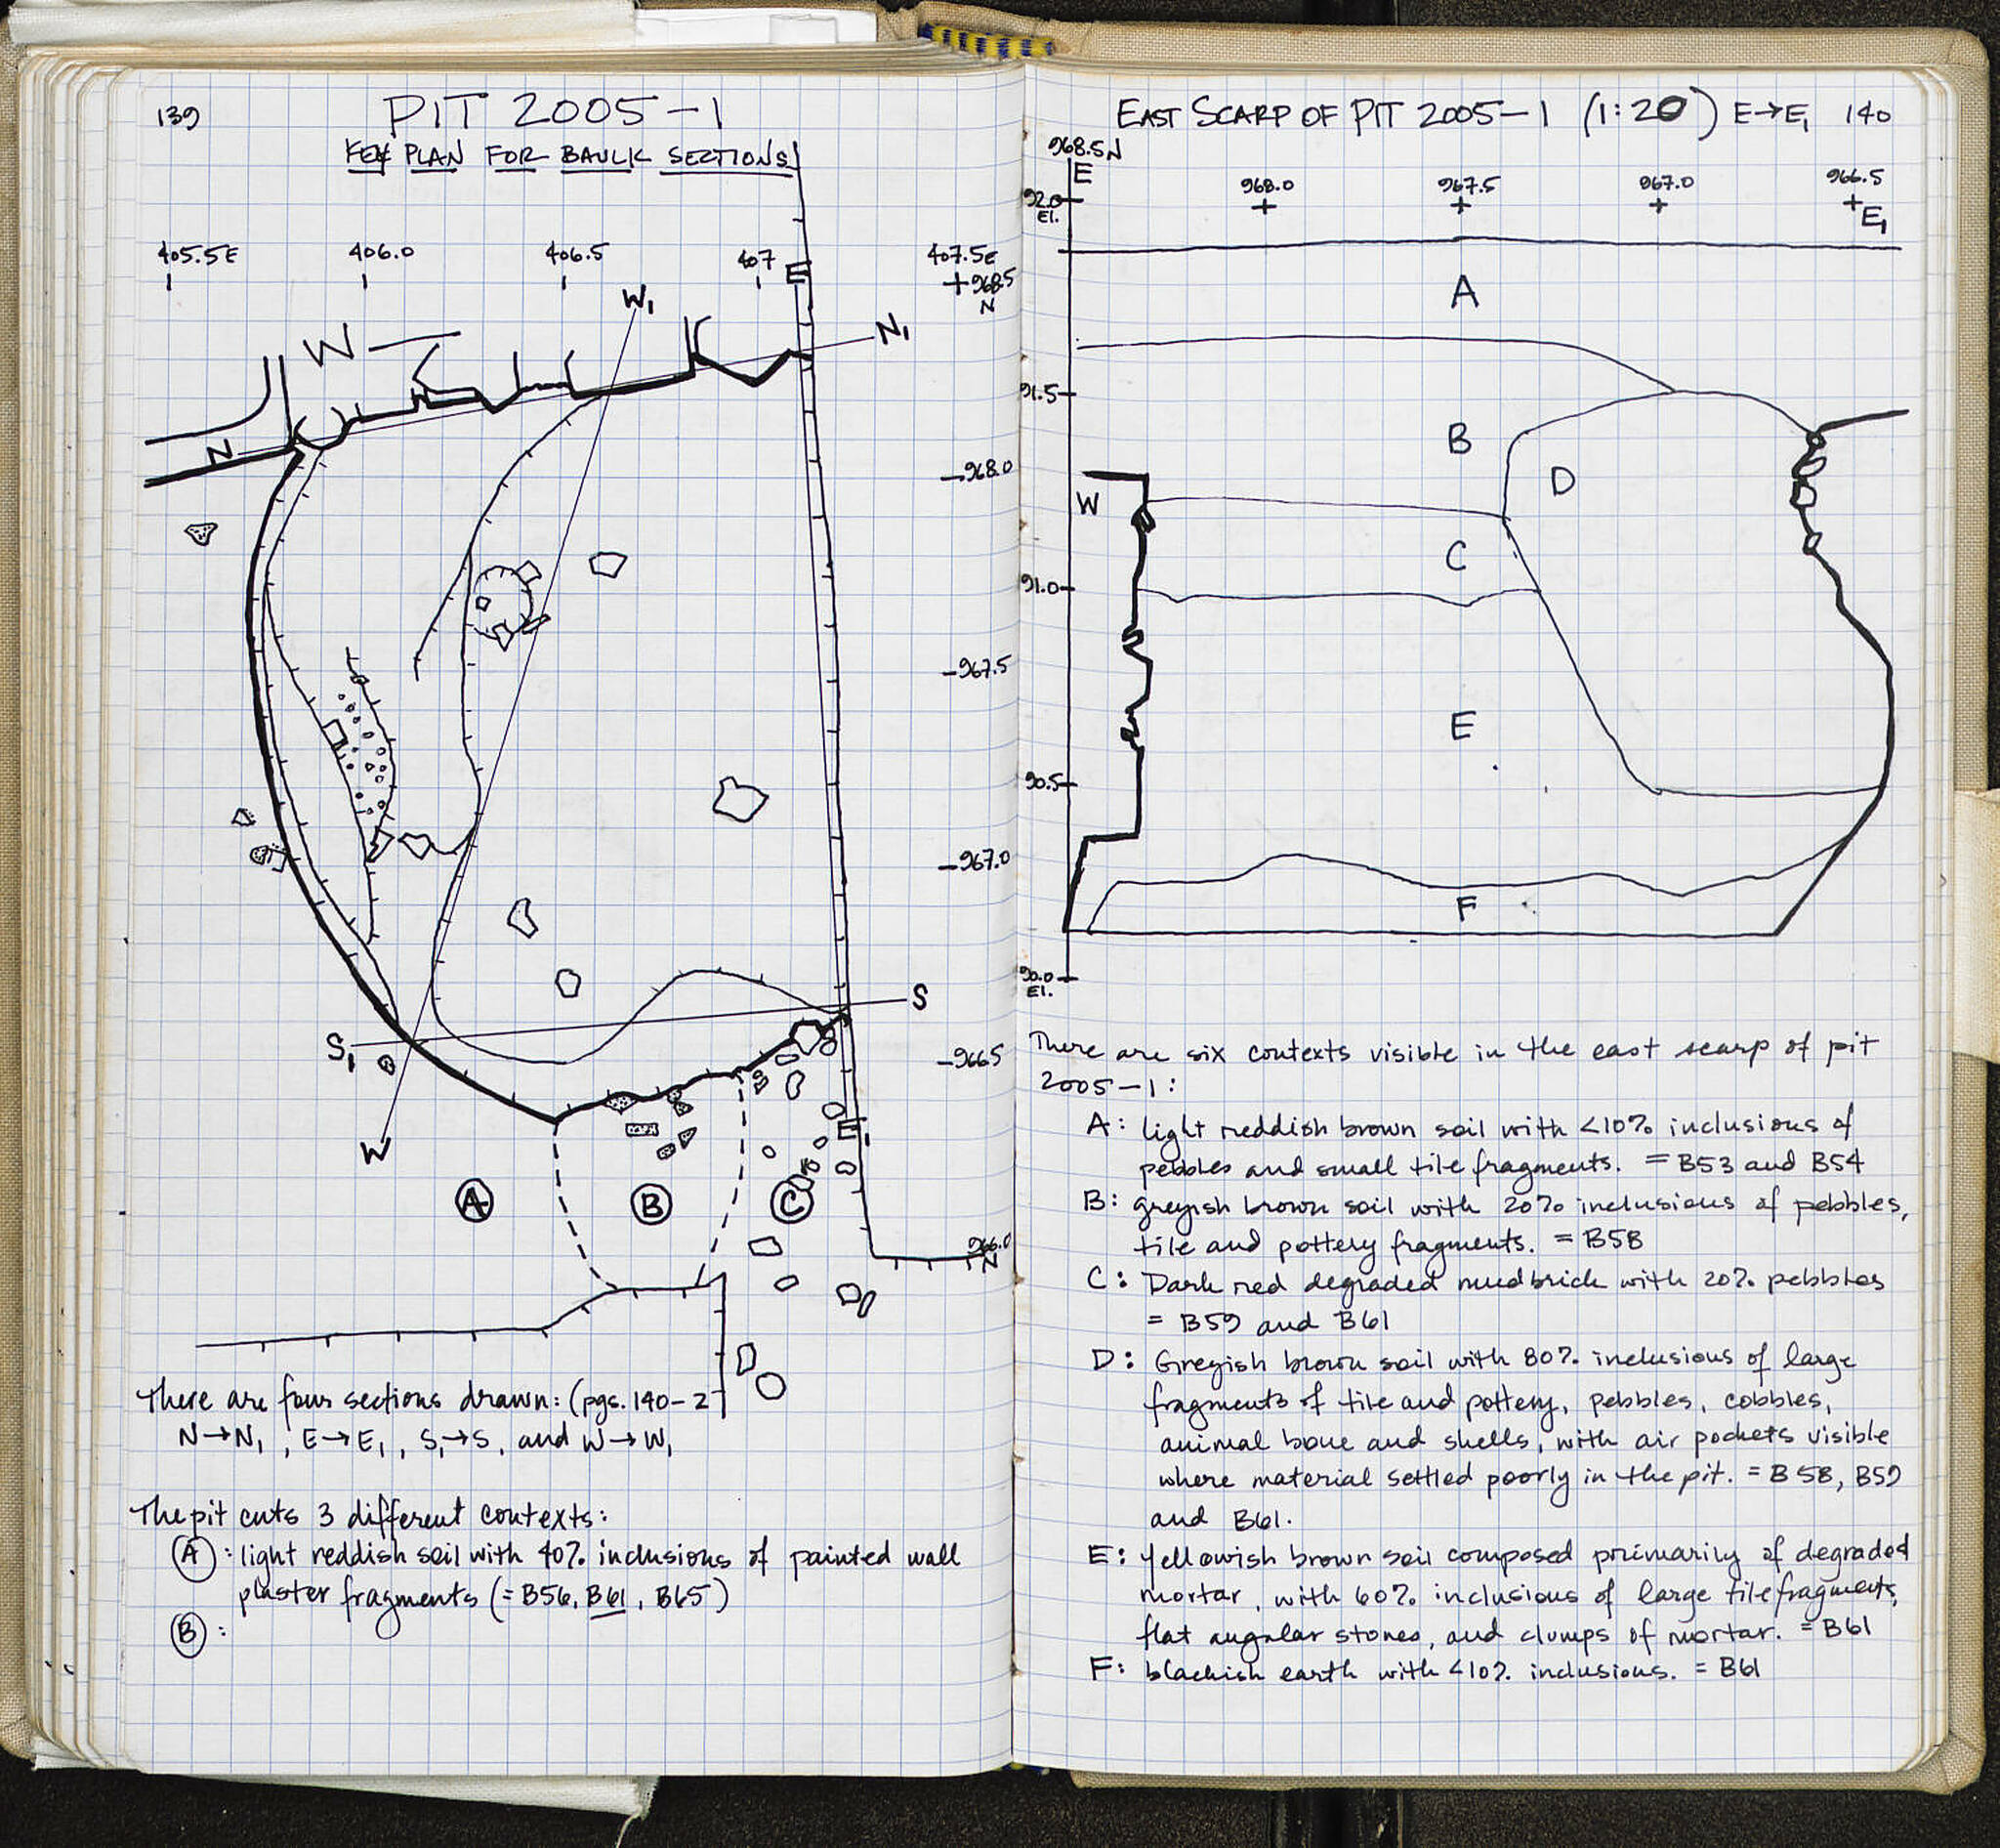 139
PIT 2005-1
KEY PLAN FOR BAULK SECTIONS
405.5E 406.0 406.5 407 407.5E
E
+968.5
N
W1
N1
W
N
-968.0
-967.5
-967.0
S
S1
-966.5
E
W
A B C
966.0
N
There are four sections drawn: (pgs. 140-2
N→N1, E→E1, S1→S, and W→W1
The pit cuts 3 different contexts:
A: light reddish soil with 40% inclusions of painted wall
plaster fragments (=B56, B61, B65)
B:
EAST SCARP OF PIT 2005-1 (1:20) E→E1 140
968.5N
E
968.0 967.5 967.0 966.5
92.0
El.
E1
A
91.5
B
D
W
C
91.0
E
90.5
F
90.0
El.
There are six contexts visible in the east scarp of pit
2005-1:
A: light reddish brown soil with <10% inclusions of
pebbles and small tile fragments. = B53 and B54
B: greyish brown soil with 20% inclusions of pebbles,
tile and pottery fragments. = B58
C: Dark red degraded mudbrick with 20% pebbles
= B59 and B61
D: Greyish brown soil with 80% inclusions of large
fragments of tile and pottery, pebbles, cobbles,
animal bone and shells, with air pockets visible
where material settled poorly in the pit. = B58, B59
and B61.
E: Yellowish brown soil composed primarily of degraded
mortar, with 60% inclusions of large tile fragments,
flat angular stones, and clumps of mortar. = B61
F: blackish earth with <10% inclusions. = B61